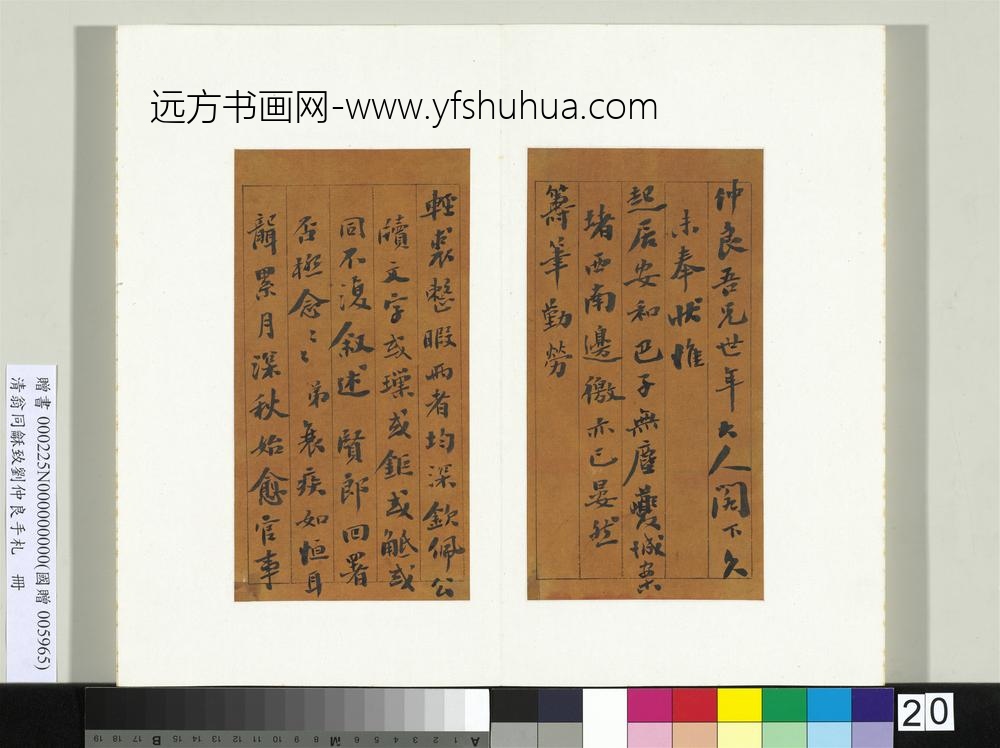 远方书画网-www.yfshuhua.com
仲良吾兄世年大人閣下久
未奉狀惟
起居安和巴子無塵夔城案
堵西南邊徼亦已晏然
籌筆勤勞
輕裘整暇兩者均深欽佩公
牘文字或璅或鉅或觝或
同不復叙述賢郎回署
否極念〻弟衰疾如恒耳
聾累月深秋始愈官事
贈書 000225N000000000(國贈 005965)
清翁同龢致劉仲良手札 冊
20
19 18 17 B 16 15 14 13 12 11 10 9 8 M 7 6 5 4 3 2 1 A